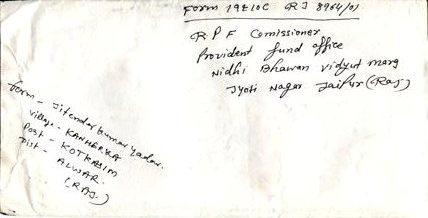 Form 19&10C RJ 8964/01
R P F Comissioner
Provident fund office
Nidhi Bhawan vidyut marg
Jyoti Nagar Jaipur (Raj)
From - Jitendar kumar yadav.
village - KANHERKA
Post - KOTKASIM
Dist - ALWAR
(RAJ.)